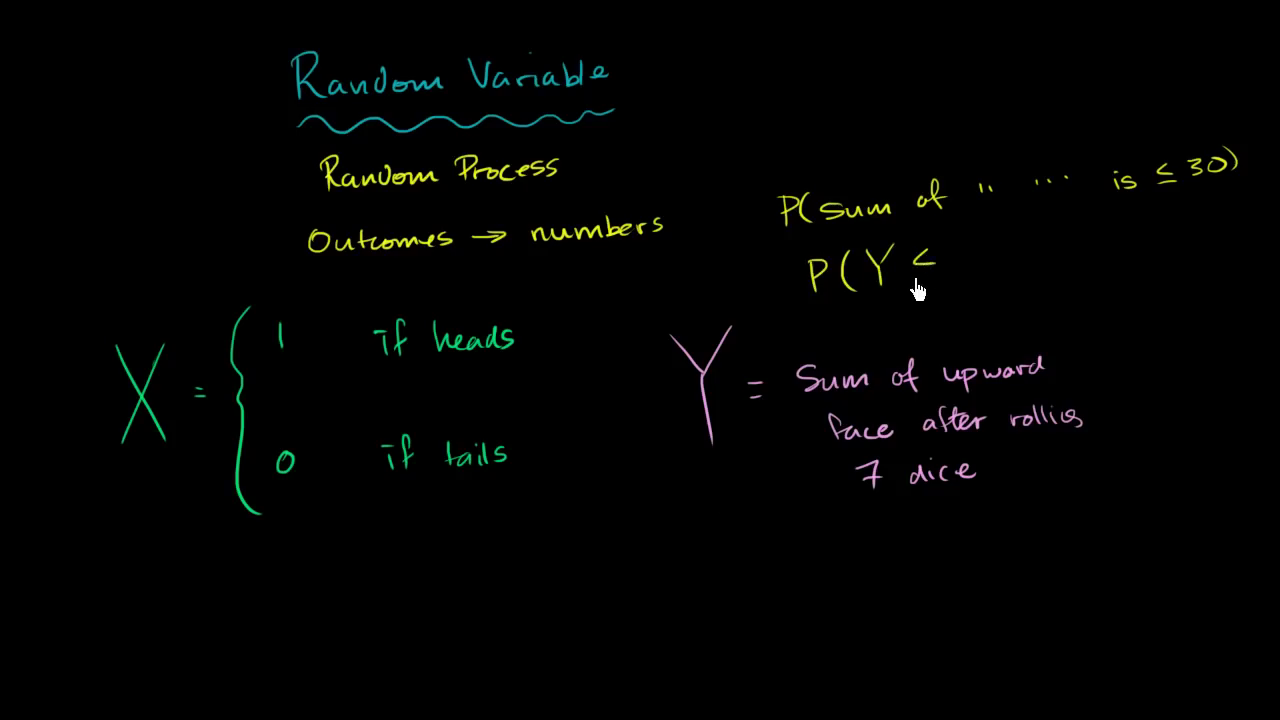 Random Variable
Random Process
Outcomes → numbers
P(Sum of " ... is ≤ 30)
P(Y <
X = { 1 if heads
0 if tails
Y = Sum of upward
face after rolling
7 dice